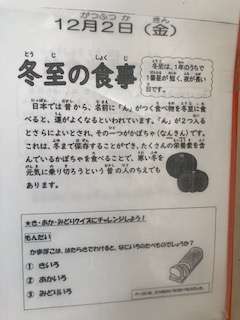 12月2日(金)
冬至の食事
冬至は、1年のうちで
1番昼が短く、夜が長い
日です。
日本では昔から、名前に「ん」がつく食べ物を冬至に食べ
ると、運がよくなるといわれています。「ん」が2つ入る
とさらによいとされ、その一つがかぼちゃ(なんきん)です。
これは、冬まで保存することができ、たくさんの栄養素を含
んでいるかぼちゃを食べることで、寒い冬を
元気に乗り切ろうという昔の人のちえでも
あります。
★き・あか・みどりクイズにチャレンジしよう!
もんだい
かまぼこは、はたらきでわけると、なにいろのたべものでしょうか?
① きいろ
② あかいろ
③ みどりいろ